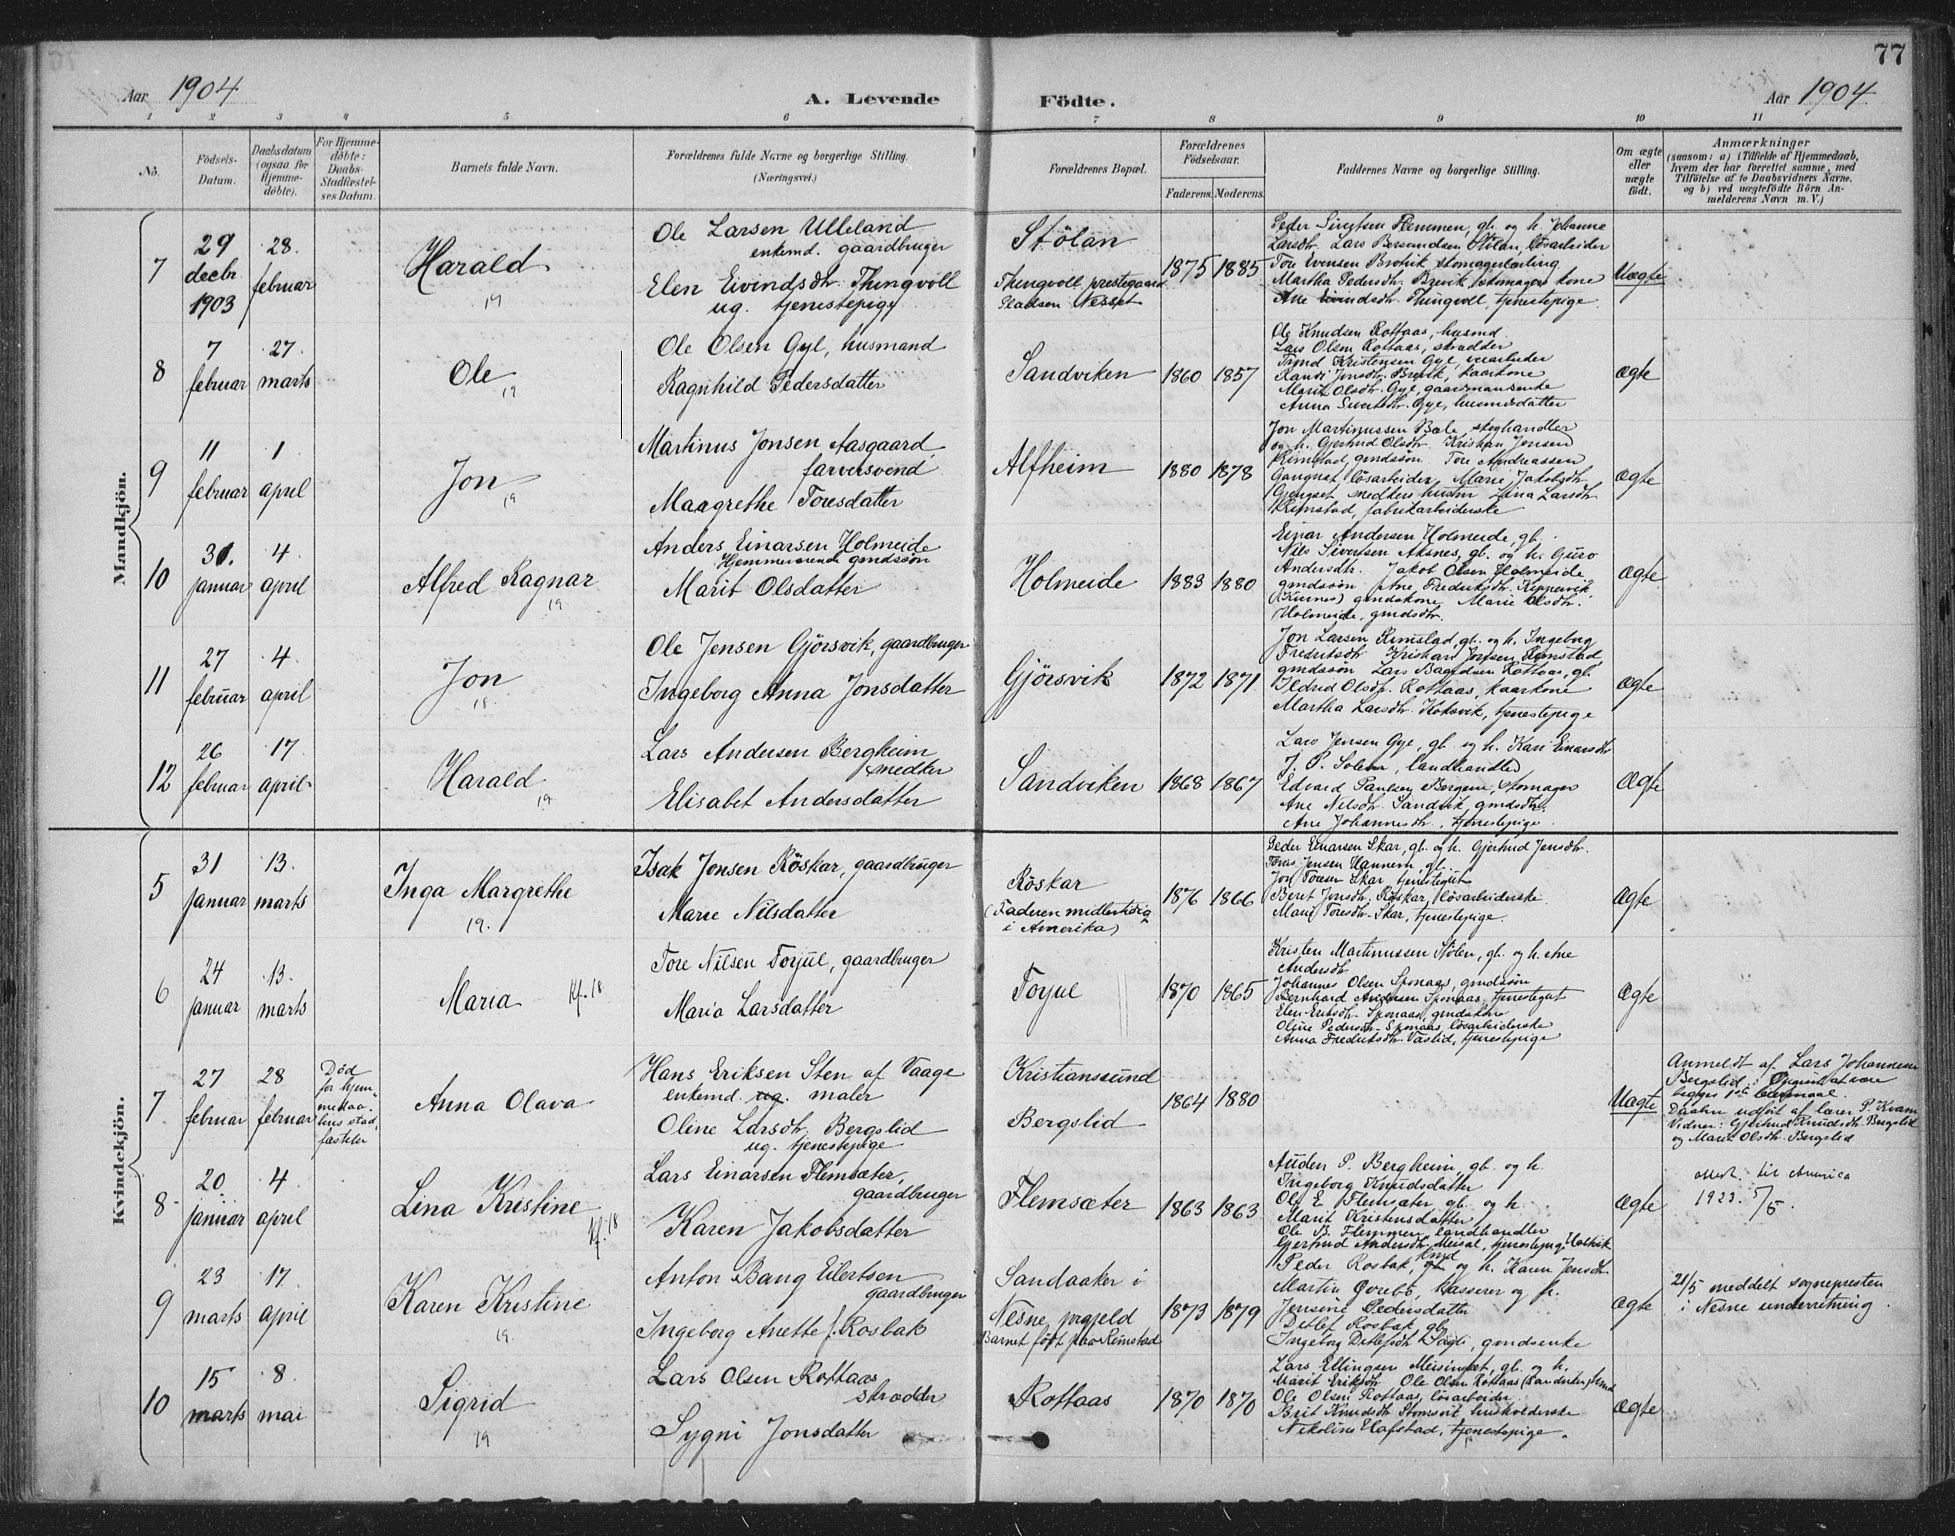 77
Aar 1904
A. Levende
Födte.
Aar 1904
1 2 3 4 5 6 7 8 9 10 11
No.
Födsels-Datum.
Daabsdatum (ogsaa for Hjemme-döbte).
For Hjemme-döbte: Daabs-Stadfæstel-ses Datum.
Barnets fulde Navn.
Forældrenes fulde Navne og borgerlige Stilling.
(Næringsvei.)
Forældrenes Bopæl.
Forældrenes Födselsaar.
Faderens. Moderens.
Faddernes Navne og borgerlige Stilling.
Om ægte eller uægte födt.
Anmærkninger
(saasom: a) i Tilfælde af Hjemmedaab,
hvem der har forrettet samme, med
Tilföielse af to Daabsvidners Navne,
og b) ved uægtefödte Börn An-
melderens Navn m. V.)
Mandkjön.
7
29 decbr 1903
28. februar
Harald
19
Ole Larsen Ulleland
enkemd. gaardbruger
Elen Eivindsdtr. Thingvoll
ug. tjenestepige
Stölan
Thingvoll prestegaard
Pladsen Nesset
1875 1885
Peder Sivertsen Flemmen, gb. og h. Johanne
Larsdtr. Lars Bersvendsen Stölan, lösarbeider
Tore Evensen Brövik skomagerlærling
Martha Pedersdtr. Brevik, skomagers kone
Ane Eivindsdtr. Thingvoll, tjenestepige
Uægte
8
7 februar
27. marts
Ole
19
Ole Olsen Gyl, husmand
Ragnhild Pedersdatter
Sandviken
1860 1857
Ole Knudsen Rottaas, husmd
Lars Olsen Rottaas, skrædder
Trond Kristensen Gyl, veiarbeider
Randi Jensdtr. Brevik, kaarkone
Marit Olsdtr. Gyl, gaardmansenke
Anna Sivertsdtr. Gyl, husmdsdatter
Ægte
9
11 februar
1 april
Jon
19
Martinus Jonsen Aasgaard
farversvend
Maagrethe Toresdatter
Alfheim
1880 1878
Jon Martinussen Bæle, skoghandler
og h. Gjertrud Olsdtr. Kristian Jonsen
Rimstad, gmdssön Tore Andreassen
Gangnat, lösarbeider Marie Jakobsdtr.
Gjengset snedkers hustru Lina Larsdtr.
Rimstad, fabrikarbeiderske
Ægte
10
31. januar
4 april
Alfred Ragnar
19
Anders Einarsen Holmeide
Hjemmeværende gmdssön
Marit Olsdatter
Holmeide
1883 1880
Einar Andersen Holmeide, gb.
Nils Sivertsen Aksnes, gb. og h. Guro
Andersdtr. Jakob Olsen Holmeide
gmdssön Ane Fredriksdtr. Kippervik
(Kvernes) gmdskone Marie Olsdtr.
Holmeide, gmdsdtr.
Ægte.
11
27 februar
4 april
Jon
18.
Ole Jensen Gjörsvik, gaardbruger
Ingeborg Anna Jonsdatter
Gjörsvik
1872 1871
Jon Larsen Rimstad, gb. og h. Ingeborg
Fredriksdtr. Kristian Jonsen Rimstad,
gmdssön Lars Baardsen Rottaas, gb.
Ildrid Olsdtr. Rottaas, kaarkone
Martha Larsdtr. Koksvik, tjenestepige
Ægte
12
26 februar
17. april
Harald
19
Lars Andersen Bergheim
snedker
Elisabet Andersdatter
Sandviken
1868 1867
Lars Jensen Gyl, gb. og h. Kari Einarsdtr
J. P. Solem, landhandler
Edvard Paulsen Bergem, skomager
Ane Nilsdtr. Sandvik, gmdsdtr.
Ane Johannesdtr., tjenestepige
Ægte
Kvindekjön.
5
31 januar
13. marts
Inga Margrethe
19.
Isak Jonsen Röskar, gaardbruger
Marie Nilsdatter
Röskar
(Faderen midlertidig
i Amerika)
1876 1866
Peder Einarsen Skar, gb. og h. Gjertrud Jensdtr.
Jensen Hannem, gb.
Jon Toresen Skar tjenestegut
Beret Jonsdtr. Röskar, lösarbeiderske
Marie Toresdtr. Skar, tjenestepige
Ægte
6
24 januar
13. marts
Maria
kf. 18
Tore Nilsen Torjul, gaardbruger
Maria Larsdatter
Torjul
1870 1865
Kristen Martinussen Stölen, gb. og h. Ane
Andersdtr.
Johannes Olsen Sponaas, gmdssön
Bernhard Andersen Sponaas, tjenestegut
Elen Eriksdtr. Sponaas, gmdskone
Oline Pedersdtr. Sponaas lösarbeiderske
Anna Fredriksdtr. Vaslid, tjenestepige
Ægte
7
27 februar
28 februar
Död
for hjem-
medaa-
bens stad-
fæstelse
Anna Olava
Hans Eriksen Sten af Vaage
enkemd. ug. maler
Oline Larsdtr. Bergslid
ug. tjenestepige
Kristianssund
Bergslid
1864 1880
Uægte
Anmeldt af Lars Johannesen
Bergslid. Opgivet at være
begges 1st leiermaal.
Daaben udfört af lærer P. Kvam
Vidner: Gjertrud Knudsdtr. Bergslid
og Marit Olsdtr. Bergslid
8
20 januar
4 april
Lina Kristine
kf. 18
Lars Einarsen Flemsæter,
gaardbruger
Karen Jakobsdatter
Flemsæter
1863 1863
Auden P. Bergheim, gb. og h.
Ingeborg Knudsdatter
Ole E. Flemsæter gb. og h.
Marit Kristensdatter
Ole B. Flemmen landhandler
Gjertrud Andersdtr. Meisal, tjenestepige
Ægte
Attest til America
1923. 5/5.
9
23 marts
17 april
Karen Kristine
19.
Anton Bang Eilertsen
gaardbruger
Ingeborg Anette f. Rosbak
Sandaaker i
Nesne prgjeld
Barnet född paa Rimstad
1873 1879
Peder Rosbak, gb. og h. Karen Jensdtr.
Martin Qvebö, kasserer og h.
Jensine Pedersdatter
Ditlef Rosbak gb.
Ingeborg Ditlefsdtr. gmdsenke
Ægte
21/5 meddelt sognepresten
i Nesne underretning
10
15 marts
8. mai
Sigrid
19
Lars Olsen Rottaas
skrædder
Sygni Jonsdatter
Rottaas
1870 1870
Lars Ellingsen Meisingset, gb. og h.
Marit Eriksdtr. Ole Olsen Rottaas
Ole Olsen Rottaas, lösarbeider
Brit Knudsdtr. Storvik husholderske
Nikoline Hafstad, tjenestepige.
Ægte